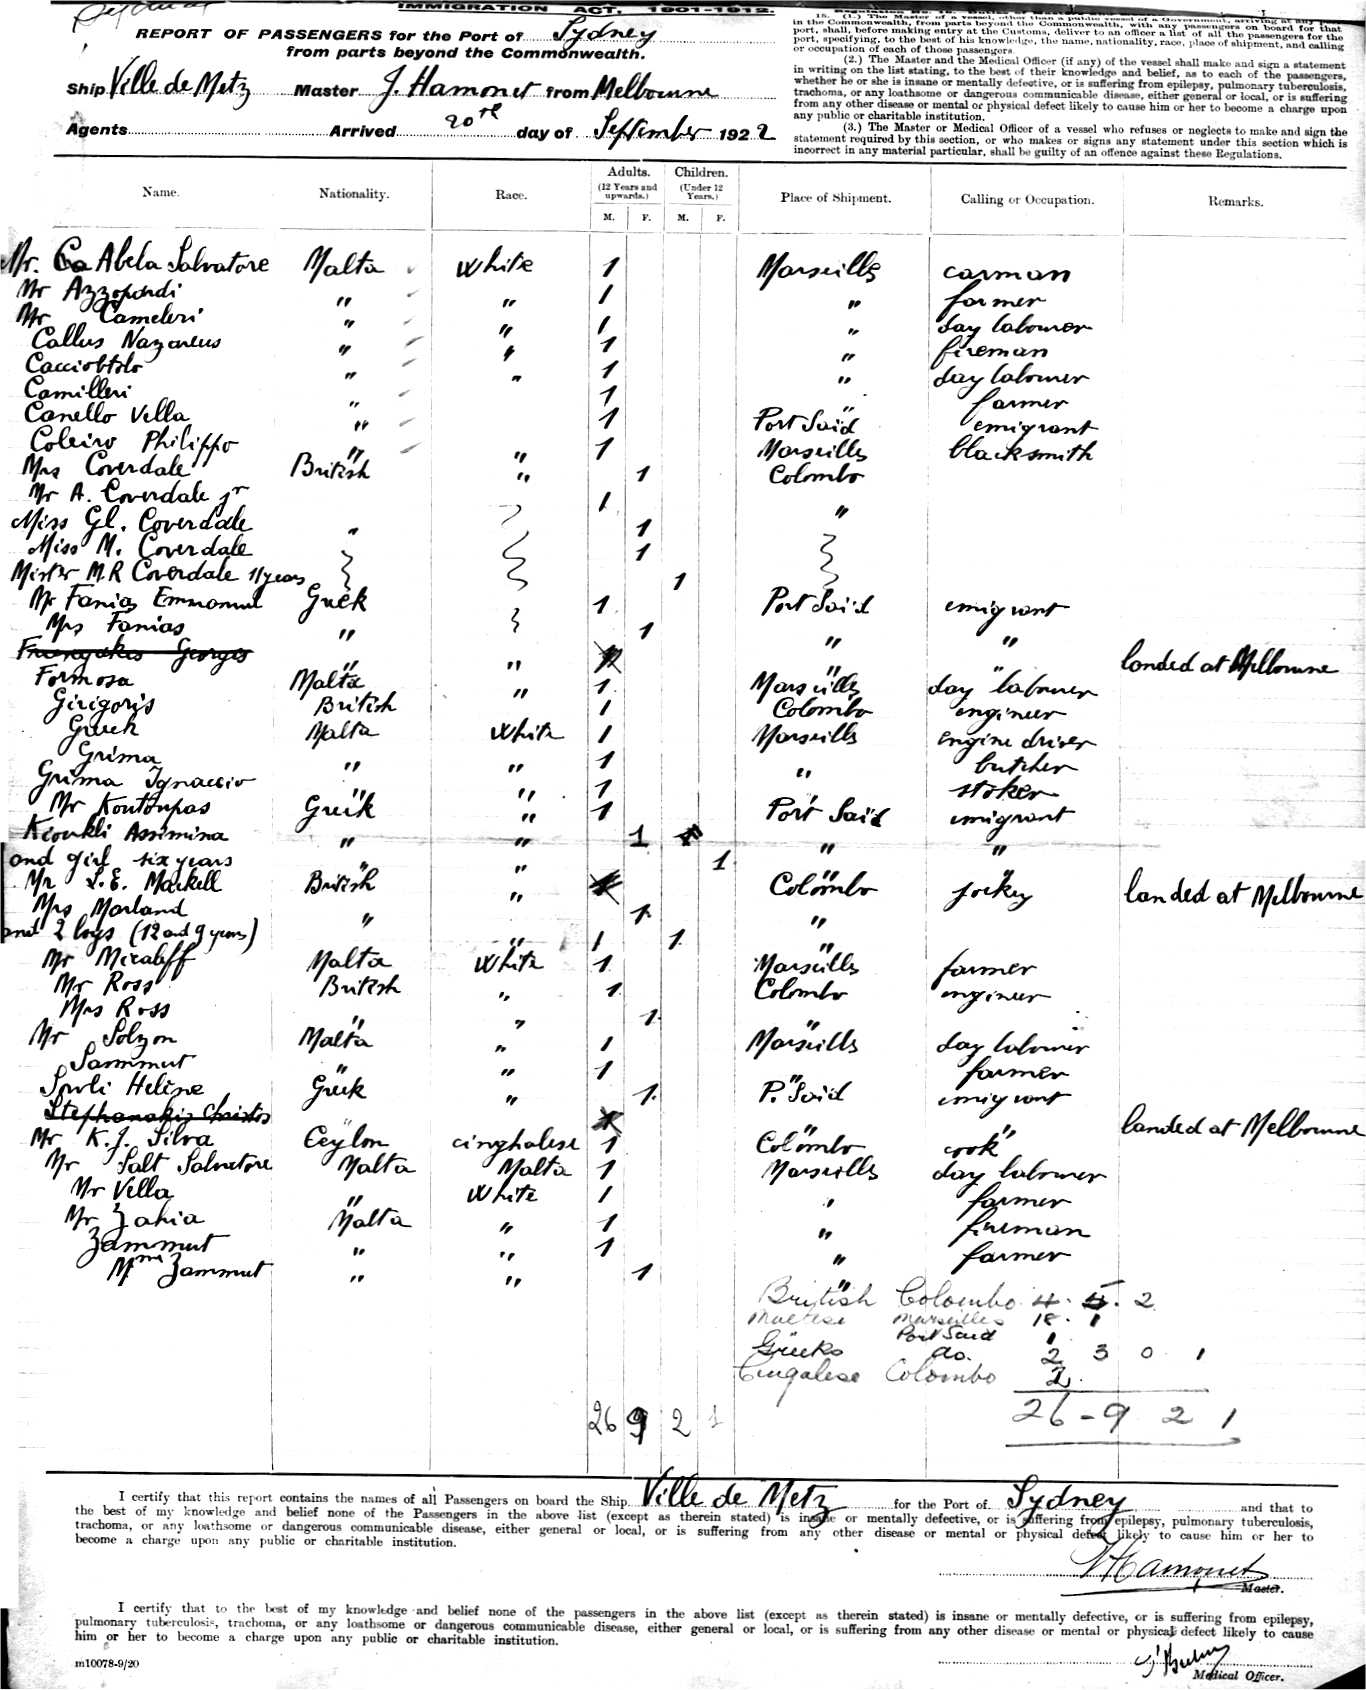 Sydney
IMMIGRATION ACT, 1901-1912.
REPORT OF PASSENGERS for the Port of Sydney
from parts beyond the Commonwealth.
Ship Ville de Metz Master J. Hamonet from Melbourne
Agents Arrived 20th day of September 1922
15. (1.) The Master of a vessel, other than a public vessel of a Government, arriving at any port
in the Commonwealth, from parts beyond the Commonwealth, with any passengers on board for that
port, shall, before making entry at the Customs, deliver to an officer a list of all the passengers for the
port, specifying, to the best of his knowledge, the name, nationality, race, place of shipment, and calling
or occupation of each of those passengers.
(2.) The Master and the Medical Officer (if any) of the vessel shall make and sign a statement
in writing on the list stating, to the best of their knowledge and belief, as to each of the passengers,
whether he or she is insane or mentally defective, or is suffering from epilepsy, pulmonary tuberculosis,
trachoma, or any loathsome or dangerous communicable disease, either general or local, or is suffering
from any other disease or mental or physical defect likely to cause him or her to become a charge upon
any public or charitable institution.
(3.) The Master or Medical Officer of a vessel who refuses or neglects to make and sign the
statement required by this section, or who makes or signs any statement under this section which is
incorrect in any material particular, shall be guilty of an offence against these Regulations.
Name. Nationality. Race. Adults. (12 Years and upwards.) Children. (Under 12 Years.) Place of Shipment. Calling or Occupation. Remarks.
M. F. M. F.
Mr. Abela Salvatore Malta White 1 Marseilles carman
Mr Azzopardi " " 1 " farmer
Mr Cameleri " " 1 " day labourer
Callus Nazareus " " 1 " fireman
Cacciottolo " " 1 " day labourer
Camilleri " 1 " farmer
Canello Vella " 1 Port Saïd emigrant
Coleiro Philippo " " 1 Marseilles blacksmith
Mrs Coverdale British " 1 Colombo
Mr A. Coverdale jr 1 "
Miss Gl. Coverdale " 1
Miss M. Coverdale 1
Mister M.R Coverdale 11 years 1
Mr Fanias Emmanuel Greek 1 Port Saïd emigrant
Mrs Fanias " 1 " "
Georges " " 1 " " landed at Melbourne
Formosa Malta " 1 Marseilles day labourer
Girigoris British 1 Colombo engineer
Greek Malta White 1 Marseills engine driver
Grima " " 1 " butcher
Grima Ignaccio " " 1 stoker
Mr Koutoupas Greek " 1 Port Saïd emigrant
Kioukli Assimina " " 1 " "
and girl six years " " 1
Mr L.E. Markell British " 1 Colombo jockey landed at Melbourne
Mrs Morland " 1 "
and 2 boys (12 and 9 years) " 1 1 "
Mr Micaleff Malta White 1 Marseills farmer
Mr Ross British " 1 Colombo engineer
Mrs Ross " " 1 "
Mr Solzon Malta " 1 Marseills day labourer
Sammut " " 1 " farmer
Helène Greek " 1 P. Saïd emigrant
Stephanakis Christos " 1 " " landed at Melbourne
Mr K.J. Silva Ceylon cinghalese 1 Colombo cook
Mr Salt Salvatore Malta Malta 1 Marseills day labourer
Mr Vella " White 1 " farmer
Mr Zahia Malta " 1 " fireman
Zammut " " 1 " farmer
Mme Zammut " " 1 "
British Colombo 4 . 5 . 2
Maltese Marseilles 18 . 1
Port Said 1
Greeks do. 2 3 0 1
Cingalese Colombo 1
26 9 2 1 26 - 9 2 1
I certify that this report contains the names of all Passengers on board the Ship Ville de Metz for the Port of Sydney and that to
the best of my knowledge and belief none of the Passengers in the above list (except as therein stated) is insane or mentally defective, or is suffering from epilepsy, pulmonary tuberculosis,
trachoma, or any loathsome or dangerous communicable disease, either general or local, or is suffering from any other disease or mental or physical defect likely to cause him or her to
become a charge upon any public or charitable institution.
J Hamonet
Master.
I certify that to the best of my knowledge and belief none of the passengers in the above list (except as therein stated) is insane or mentally defective, or is suffering from epilepsy,
pulmonary tuberculosis, trachoma, or any loathsome or dangerous communicable disease, either general or local, or is suffering from any other disease or mental or physical defect likely to cause
him or her to become a charge upon any public or charitable institution.
m10078-9/20
Medical Officer.